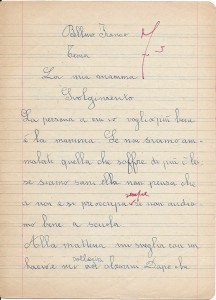 Franco
Tema
La mia mamma
Svolgimento
La persona a cui voglio più bene
è la mamma. Se noi siamo am-
malati quella che soffre di più è lei
se siamo sani ella non pensa che
a noi e si preoccupa sempre se non andia-
mo bene a scuola.
Alla mattina mi sveglia con un
bacio e mi
solleva